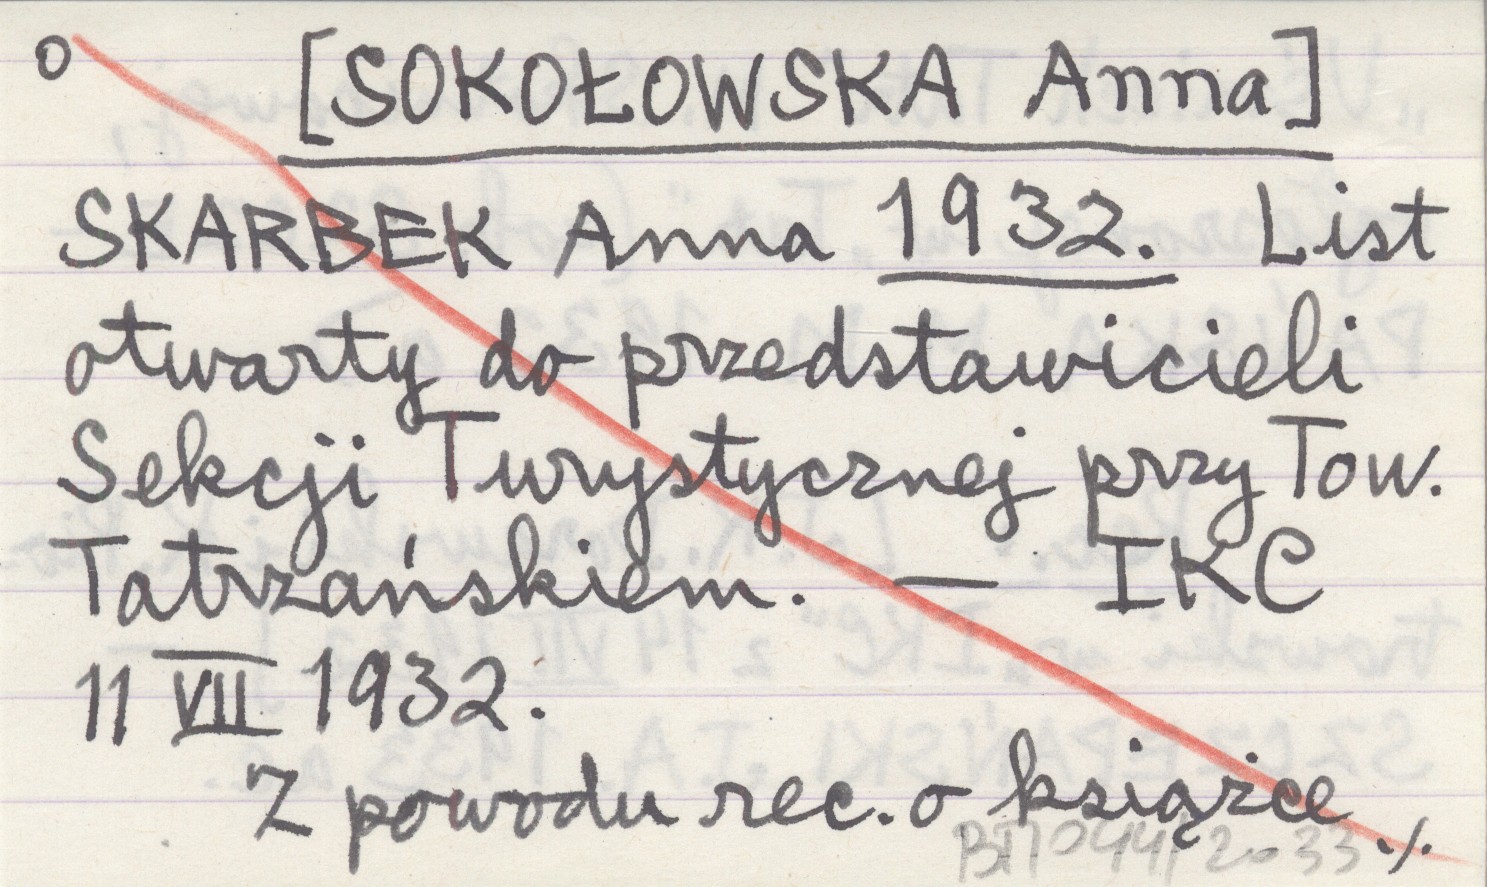 o [SOKOŁOWSKA Anna]
SKARBEK Anna 1932. List
otwarty do przedstawicieli
Sekcji Turystycznej przy Tow.
Tatrzańskiem. — IKC
11 VII 1932.
Z powodu rec. o książce ./.